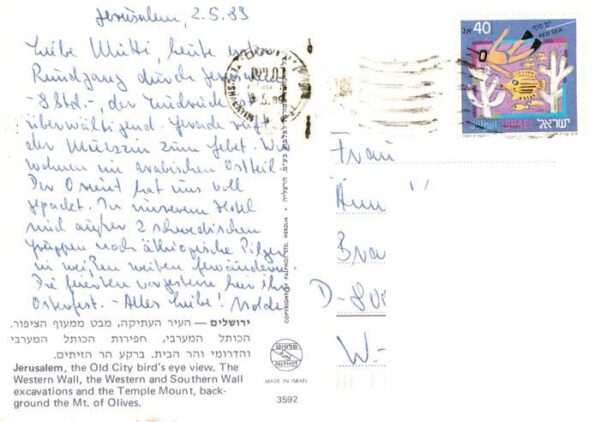 Jerusalem, 2.5.89
Liebe Mutti, heute
Rundgang durch
- 8 Std. - der Eindrücke
überwältigend. Gerade ruft
der Muezzin zum Gebet. Wir
wohnen im arabischen Ostteil.
Der Orient hat uns voll
gepackt. In unserem Hotel
sind außer 2 schwedischen
Gruppen noch äthiopische Pilger
in weißen weiten Gewändern.
Die feierten vorgestern hier ihr
Osterfest. - Alles Liebe!
ירושלים — העיר העתיקה, מבט ממעוף הציפור.
הכותל המערבי, חפירות הכותל המערבי
והדרומי והר הבית. ברקע הר הזיתים.
Jerusalem, the Old City bird's eye view. The
Western Wall, the Western and Southern Wall
excavations and the Temple Mount, back-
ground the Mt. of Olives.
COPYRIGHT BY PALPHOT LTD. HERZLIA
פלפוט
PALPHOT
MADE IN ISRAEL
3592
40
ים סוף
RED-SEA
ISRAEL
ישראל
Frau
D-
W-